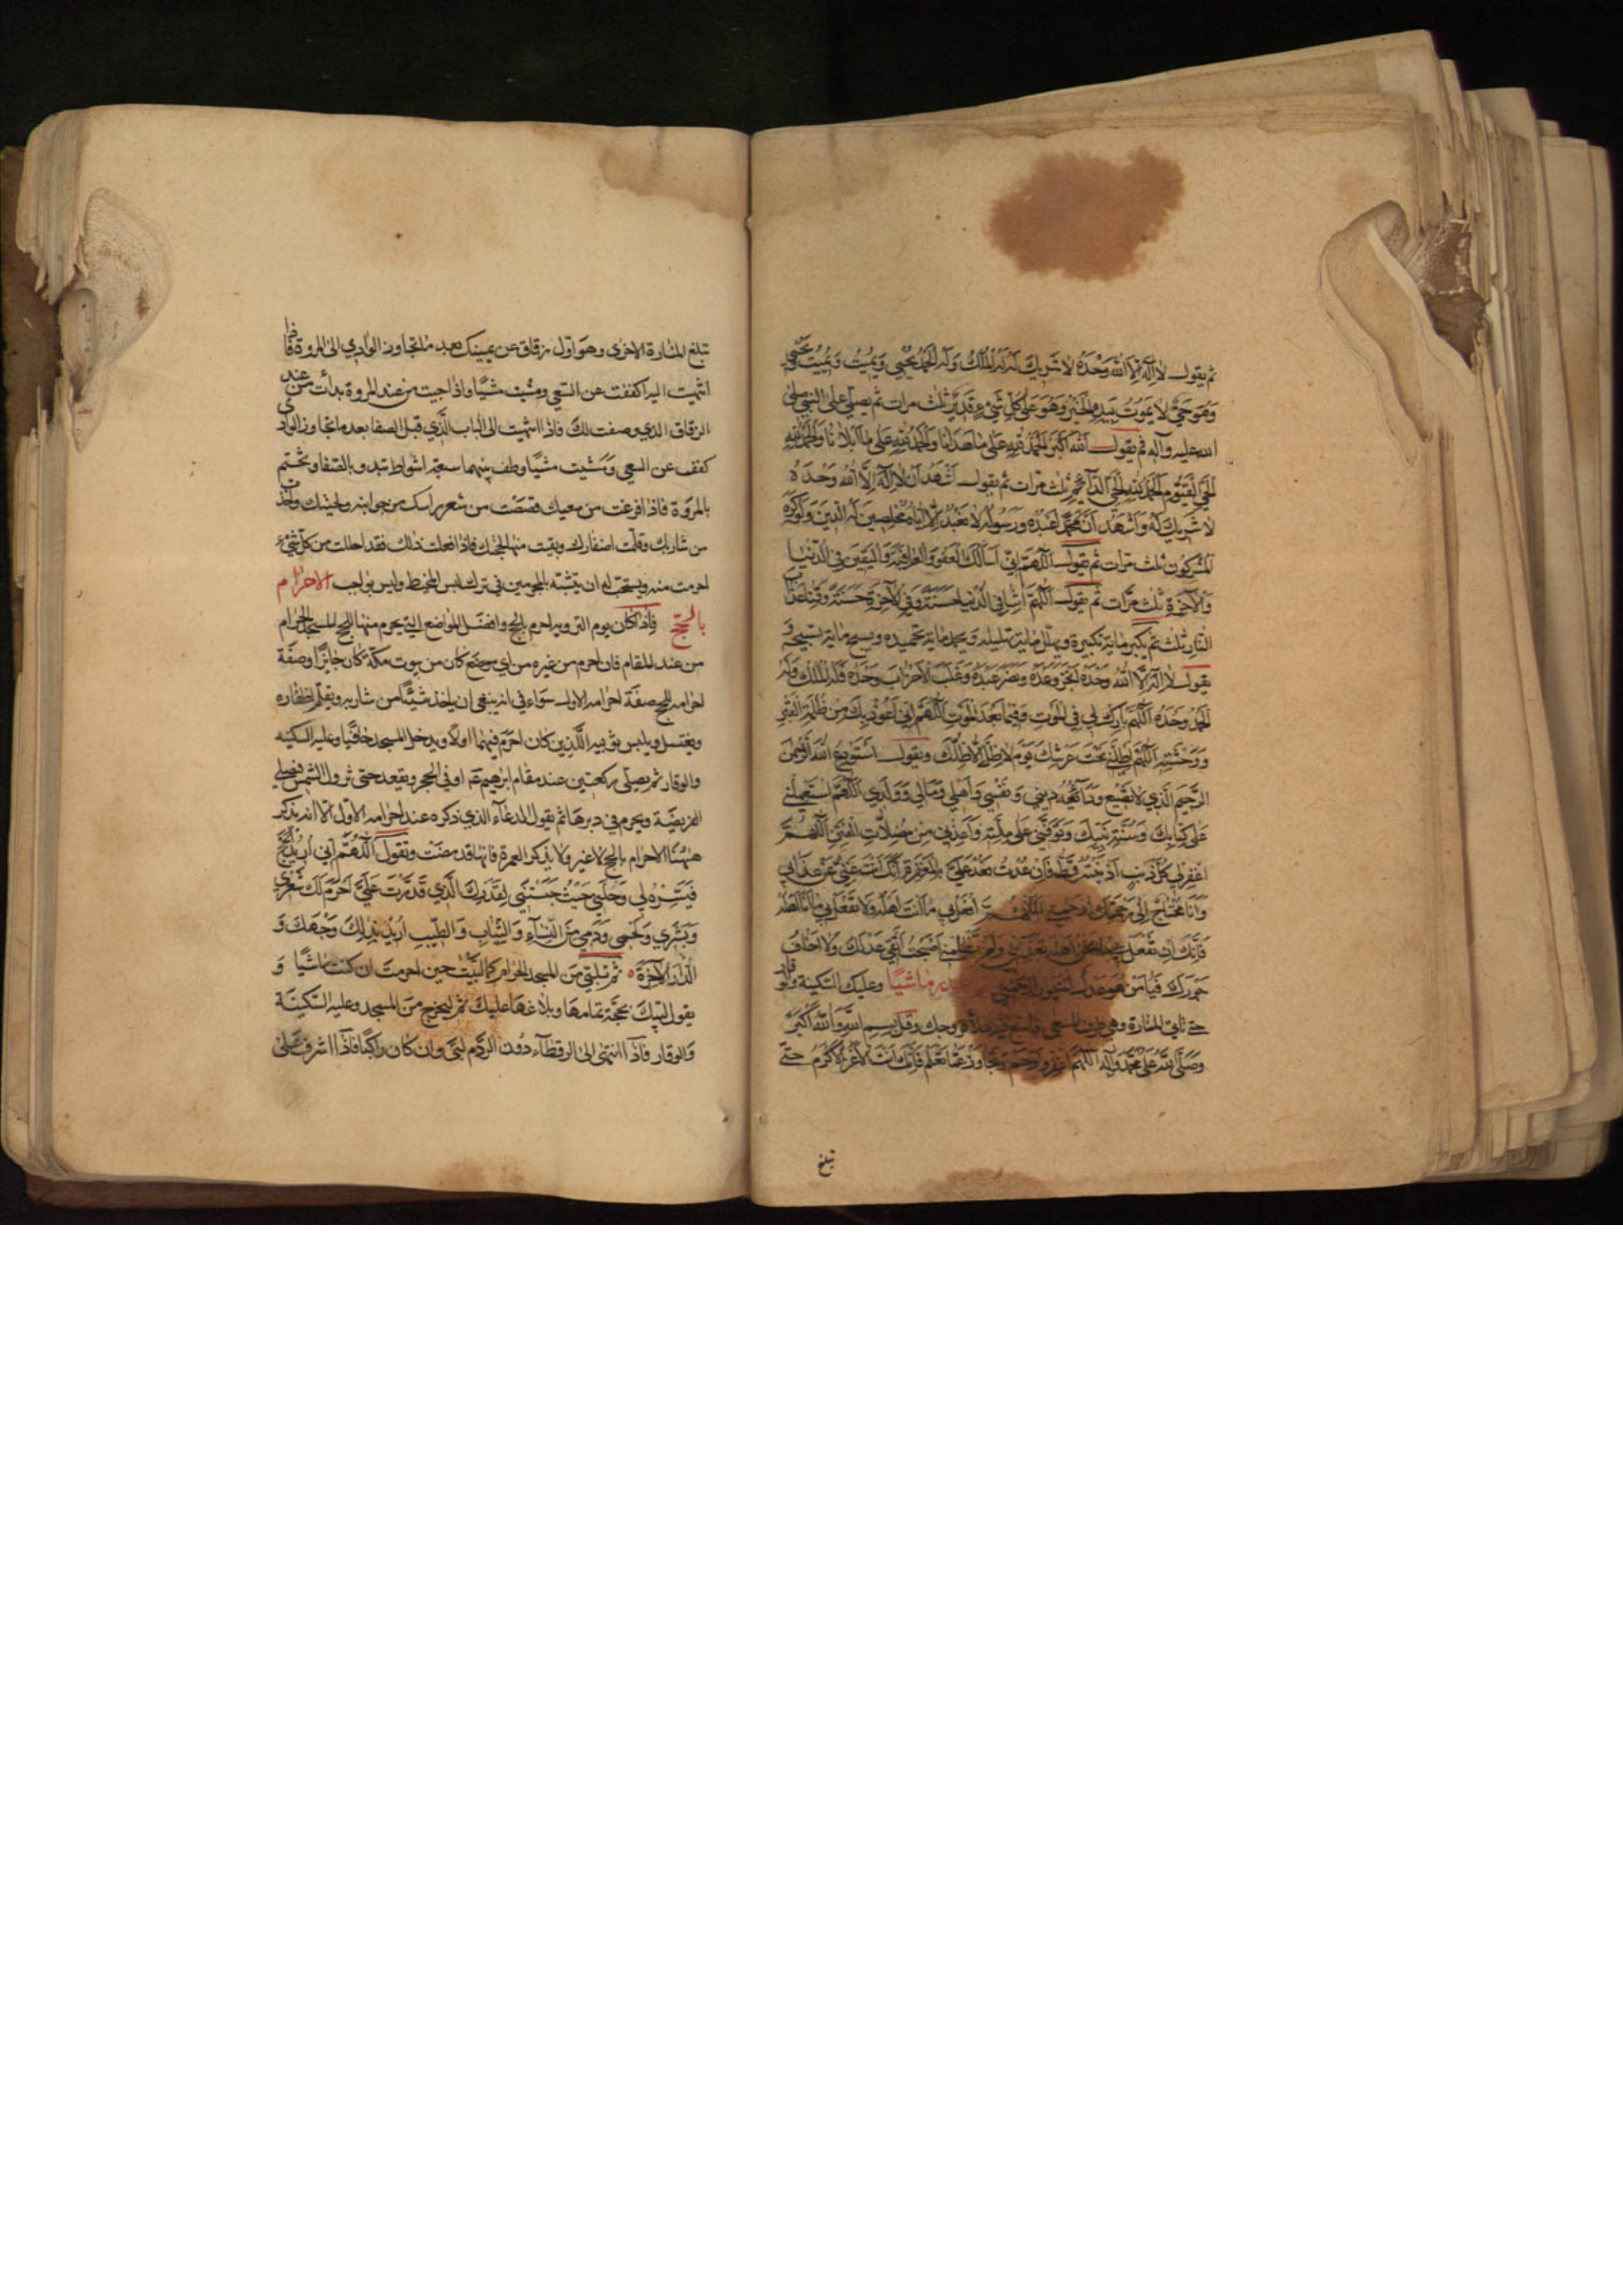 ثم يقول لا اله الا الله وحده لا شريك له له الملك وله الحمد يحيي ويميت ويميت ويحيي
وهو حي لا يموت بيده الخير وهو على كل شيء قدير ثلث مرات ثم يصلي على النبي صلى
الله عليه وآله ثم يقول الله اكبر الحمد لله على ما هدانا والحمد لله على ما ابلانا والحمد لله
الحي القيوم الحمد لله الحي الدائم ثلث مرات ثم يقول اشهد ان لا اله الا الله وحده
لا شريك له واشهد ان محمدا عبده ورسوله لا نعبد الا اياه مخلصين له الدين ولو كره
المشركون ثلث مرات ثم يقول اللهم اني اسالك العفو والعافية واليقين في الدنيا
والآخرة ثلث مرات ثم يقول اللهم آتنا في الدنيا حسنة وفي الآخرة حسنة وقنا عذاب
النار ثلث ثم يكبر ماية تكبيرة ويهلل ماية تهليله ويحمد ماية تحميده ويسبح ماية تسبيحة و
يقول لا اله الا الله وحده انجز وعده ونصر عبده وغلب الاحزاب وحده فله الملك وله
الحمد وحده اللهم بارك لي في الموت وفيما بعد الموت اللهم اني اعوذ بك من ظلمة القبر
ووحشته اللهم اظلني تحت عرشك يوم لا ظل الا ظلك ويقول استودع الله الرحمن
الرحيم الذي لا تضيع ودائعه ديني ونفسي واهلي ومالي وولدي اللهم استعملني
على كتابك وسنة نبيك وتوفني على ملته واعذني من مضلات الفتن اللهم
اغفر لي كل ذنب اذنبته قط فان عدت فعد علي بالمغفرة انك انت غني عن عذابي
وانا محتاج الى رحمتك افعل بي ما انت اهله ولا تفعل بي ما انا اهله
فانك ان تفعل بي ما انا اهله تعذبني ولم تظلمني اصبحت اتقي عدلك ولا اخاف
جورك فيا من هو عدل لا يجور ارحمني ماشيا وعليك السكينة والوقار
حتى تاتي المنارة وهي طرف المسعى وقل بسم الله والله اكبر
وصلى الله على محمد وآله اللهم اغفر وارحم وتجاوز عما تعلم فانك انت الاعز الاكرم حتى
تبلغ
تبلغ المنارة الاخرى وهو اول زقاق عن يمينك بعد ما تتجاوز الوادي الى المروة فاذا
انتهيت اليه كففت عن السعي ومشيت مشيا واذا جيت من عند المروة بدات من عند
الزقاق الذي وصفت لك فاذا انتهيت الى الباب الذي قبل الصفا بعد ما تتجاوز الوادي
كفف عن السعي ومشيت مشيا وطف بينهما سبعة اشواط تبدو بالصفا وتختم
بالمروة فاذا فرغت من سعيك قصصت من شعر راسك من جوانبه ولحيتك واخذت
من شاربك وقلمت اضفارك وبقيت منها لحجك فاذا فعلت ذلك فقد احللت من كل شيء
احرمت منه ويستحب له ان يتشبه بالمحرمين في ترك لبس المخيط وليس بواجب الاحرام
بالحج فاذا كان يوم التروية احرم بالحج وافضل المواضع التي يحرم منها للحج المسجد الحرام
من عند المقام فان احرم من غيره من اي موضع كان من بيوت مكة كان جايزا وصفة
احرامه للحج صفة احرامه الاول سواء في انه ينبغي ان ياخذ شيئا من شاربه ويقلم اظفاره
ويغتسل ويلبس ثوبيه اللذين كان احرم فيهما اولا ويدخل المسجد حافيا وعليه السكينه
والوقار ثم يصلي ركعتين عند مقام ابرهيم او في الحجر ويقعد حتى تزول الشمس فيصلي
الفريضة ويحرم في دبرها ثم يقول الدعاء الذي ذكره عند احرامه الاول الا انه يذكر
ههنا الاحرام بالحج لا غير ولا يذكر العمرة فانها قد مضت وتقول اللهم اني اريد الحج
فيسره لي وحلني حيث حبستني لقدرك الذي قدرت علي احرم لك شعري
وبشري ولحمي ودمي من النساء والثياب والطيب اريد بذلك وجهك و
الدار الآخرة ثم تلبي من المسجد الحرام كما لبيت حين احرمت ان كنت ماشيا و
يقول لبيك بحجة تمامها وبلاغها عليك ثم ليخرج من المسجد وعليه السكينة
والوقار فاذا انتهى الى الرقطاء دون الردم لبى وان كان راكبا فاذا اشرف على